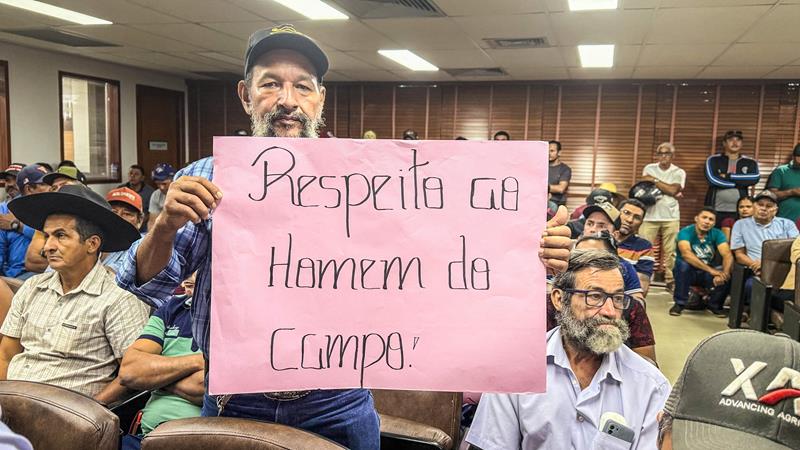 Respeito ao
Homem do
Campo!
XA
ADVANCING AGR